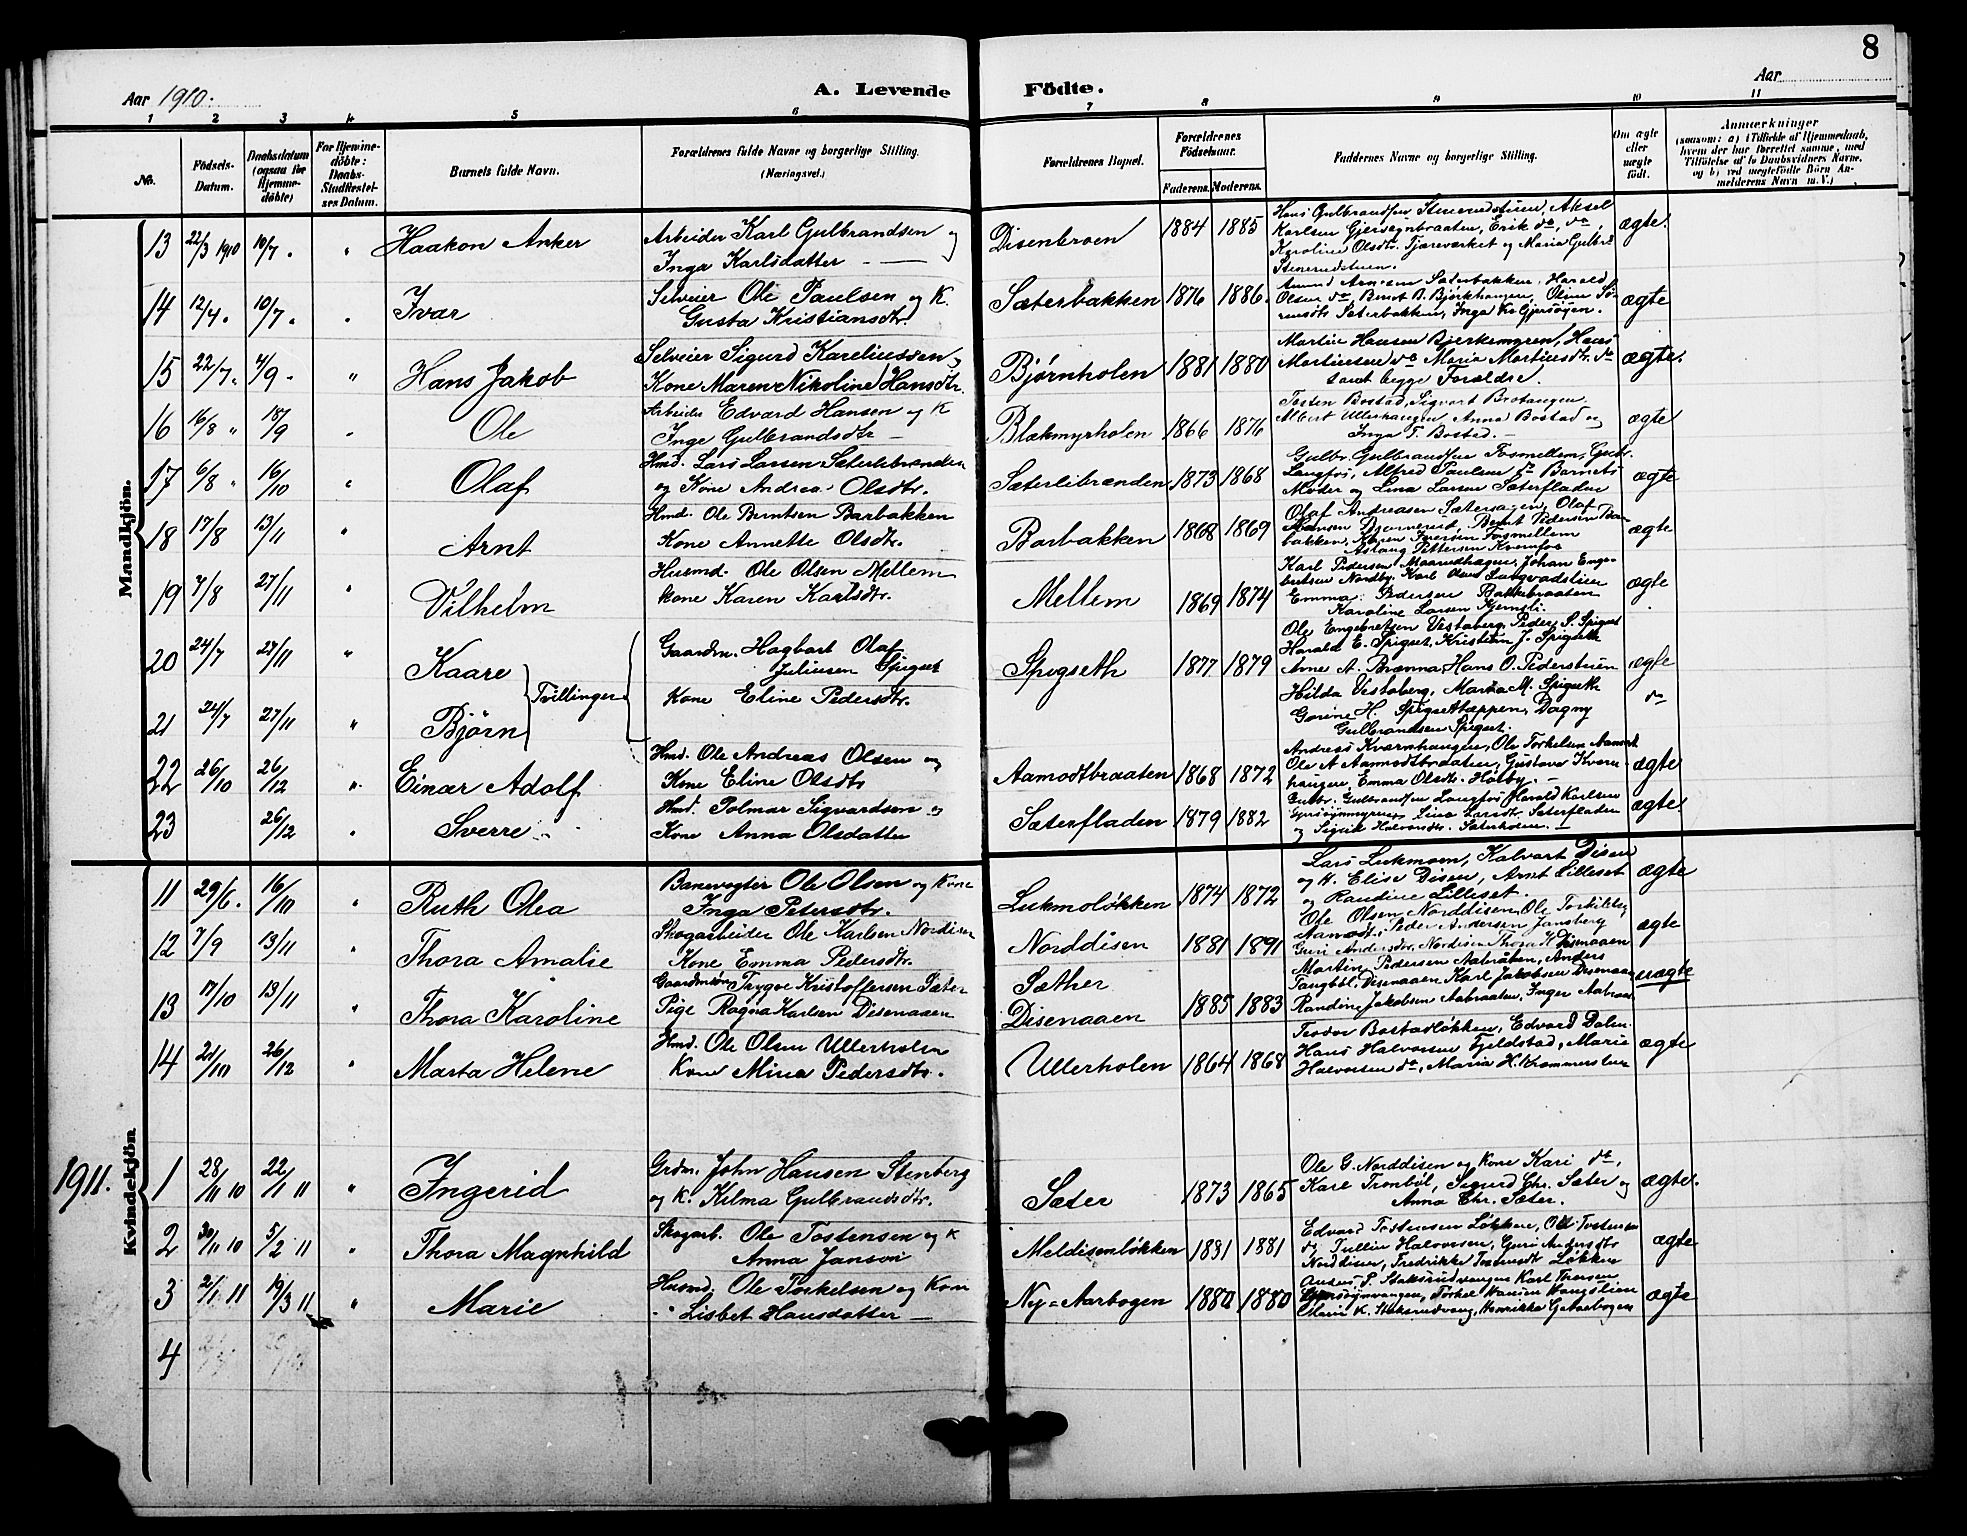 8
Aar 1910.
A. Levende Födte.
Aar
1 2 3 4 5 6 7 8 9 10 11
No.
Födsels-Datum.
Daabsdatum (ogsaa for Hjemmedöbte)
For Hjemmedöbte: Daabs-Stadfæstelses Datum.
Barnets fulde Navn.
Forældrenes fulde Navne og borgerlige Stilling. (Næringsvei.)
Forældrenes Bopæl.
Forældrenes Födselsaar.
Faderens. Moderens.
Faddernes Navne og borgerlige Stilling.
Om ægte eller uægte födt.
Anmærkninger
(saasom: a) i Tilfælde af Hjemmedaab, hvem der har forrettet samme, med Tilföielse af to Daabsvidners Navne, og b) ved uægtefödte Börn Anmelderens Navn m. V.)
Mandkjön.
13 22/3 1910 10/7 " Haakon Anker Arbeider Karl Gulbrandsen og Inga Karlsdatter Disenbroen 1884 1885 Hans Gulbrandsen Stenerudstuen, Aksel Karlsen Erik do, Karoline Olsdtr. Tjæreverket og Maria Gulbr. Stenerudstuen. ægte.
14 12/4 10/7 " Ivar Selveier Ole Paulsen og K. Gusta Kristiansdtr. Sæterbakken 1876 1886. Amund Sæterbakken, Harald Olsen do, Bernt B. Bjørkhaugen, Oline Sæterbakken, Inga ægte
15 22/7 4/9 " Hans Jakob Selveier Sigurd Kareliussen og Kone Maren Nikoline Hansdtr. Bjørnholen 1881 1880 Martin Hansen Hans Martinsen do Maria Martinsdtr. do samt begge Forældre. ægte.
16 16/8 18/9 " Ole Arbeider Edvard Hansen og K Inge Gulbrandsdtr Blakmyrholen 1866 1876 Tosten Bostad, Sigvart Brotangen. Albert Ullerhaugen Anna Bostad og Inga T. Bostad. ægte
17 6/8 16/10 " Olaf Hmd. Lars Larsen Sæterlibrænden og Kone Andrea Olsdtr. Sæterlibrænden 1873 1868 Gulbr. Gulbrandsen Fosmellem, Langfos, Alfred Paulsen do Barnets Moder og Lina Larsen Sæterfladen ægte
18 17/8 13/11 " Arnt Hmd. Ole Berntsen Barbakken Kone Annette Olsdtr. Barbakken 1868 1869 Olaf Andreasen Olaf Hansen Bernt Pedersen Barbakken, Iversen Fosmellem Aslaug Pettersen Kvernfos ægte
19 7/8 27/11 " Vilhelm Husmd. Ole Olsen Mellem Kone Karen Karlsdtr. Mellem 1869 1874 Karl Pedersen Johan Engebretsen Nordby. Karl Olsen Emma Pedersen Bakkebraaten Karoline Larsen ægte
20 24/7 27/11 " Kaare
21 24/7 27/11 " Bjørn
Tvillinger
Gaardm. Hagbart Olaf Juliusen Spigset Kone Eline Pedersdtr. Spigseth 1877 1879 Ole Engebretsen Vestaberg, Peder S. Spigset Harald E. Spigset, Kristian J. Spigseth Arne A. Brænna Hans O. Pederstuen Hilda Vestaberg, Martha M. Spigseth Gorine H. Spigsettæppen, Dagny Gulbrandsen Spigset. ægte do
22 26/10 26/12 " Einar Adolf Hmd. Ole Andreas Olsen og Kone Eline Olsdtr Aamodtbraaten 1868 1872 Andreas Kvernhaugen, Ole Torkelsen Aamodt Ole A Aamodtbraaten, Gustava Kvernhaugen, Emma Olsdtr. Holby. ægte
23 26/12 " Sverre Hmd. Polmar Sigvardsen og Kone Anna Olsdatter Sæterfladen 1879 1882 Gulbr. Gulbrandsen Langfos Harald Karlsen Lina Larsdtr. Sæterfladen og Sigrik Halvorsdtr. Sæterholen. ægte.
Kvindekjön
11 29/6. 16/10 " Ruth Olea Banevogter Ole Olsen og Kone Inga Petersdtr. Lukmoløkken 1874 1872 Lars Lukmoen, Halvart Disen og K. Elise Disen, Arnt Lilleset og Randine Lilleset. ægte
12 7/9 13/11 Thora Amalie Skogarbeider Ole Karlsen Nordisen Kone Emma Pedersdtr. Norddisen 1881 1891 Ole Olsen Norddisen, Ole Torkilsen Aamodt, Peder Andersen Jansberg Guri Andersdtr. Nordisen Thora K Disenaaen ægte
13 17/10 13/11 " Thora Karoline Gaardmsøn Trygve Kristoffersen Sæter Pige Ragna Karlsen Disenaaen Sæther Disenaaen 1885 1883 Martin Pedersen Aabraaten, Anders Tangbøl, Disenaaen Karl Jakobsen Disenaaen Randine Jakobsen Aabraaten, Inger uægte
14 21/10 26/12 " Marta Helene Hmd. Ole Olsen Ullerholen Kone Mina Pedersdtr. Ullerholen 1864 1868 Teodor Bostadløkken, Edvard Dalen Hans Halvorsen Fjeldstad, Marie Halvorsen do, Maria H. ægte
1911.
1 28/11 10 22/1 11 " Ingerid Grdm. John Hansen Stenberg og K. Kilma Gulbrandsdtr. Sæter 1873 1865 Ole G. Norddisen og Kone Kari do, Kare Tronbøl, Sigurd Chr. Sæter og Anna Chr. Sæter. ægte.
2 30/11 10 5/2 11 " Thora Magnhild Skogarb. Ole Tostensen og K Anna Janson Meldisenløkken 1881 1881 Edvard Tostensen Løkken, Ole Tostensen do Tullin Halvorsen, Guri Andersdtr Norddisen, Fredrikke Tostensdtr Løkken ægte
3 2/1 11 19/3 11 " Marie Husmd. Ole Torkelsen og Kone Lisbet Hansdatter Ny=Aarbogen 1880 1880 Karl Thoresen Torkel Hansen Marie K. Henrikka G. Aarbogen ægte
4